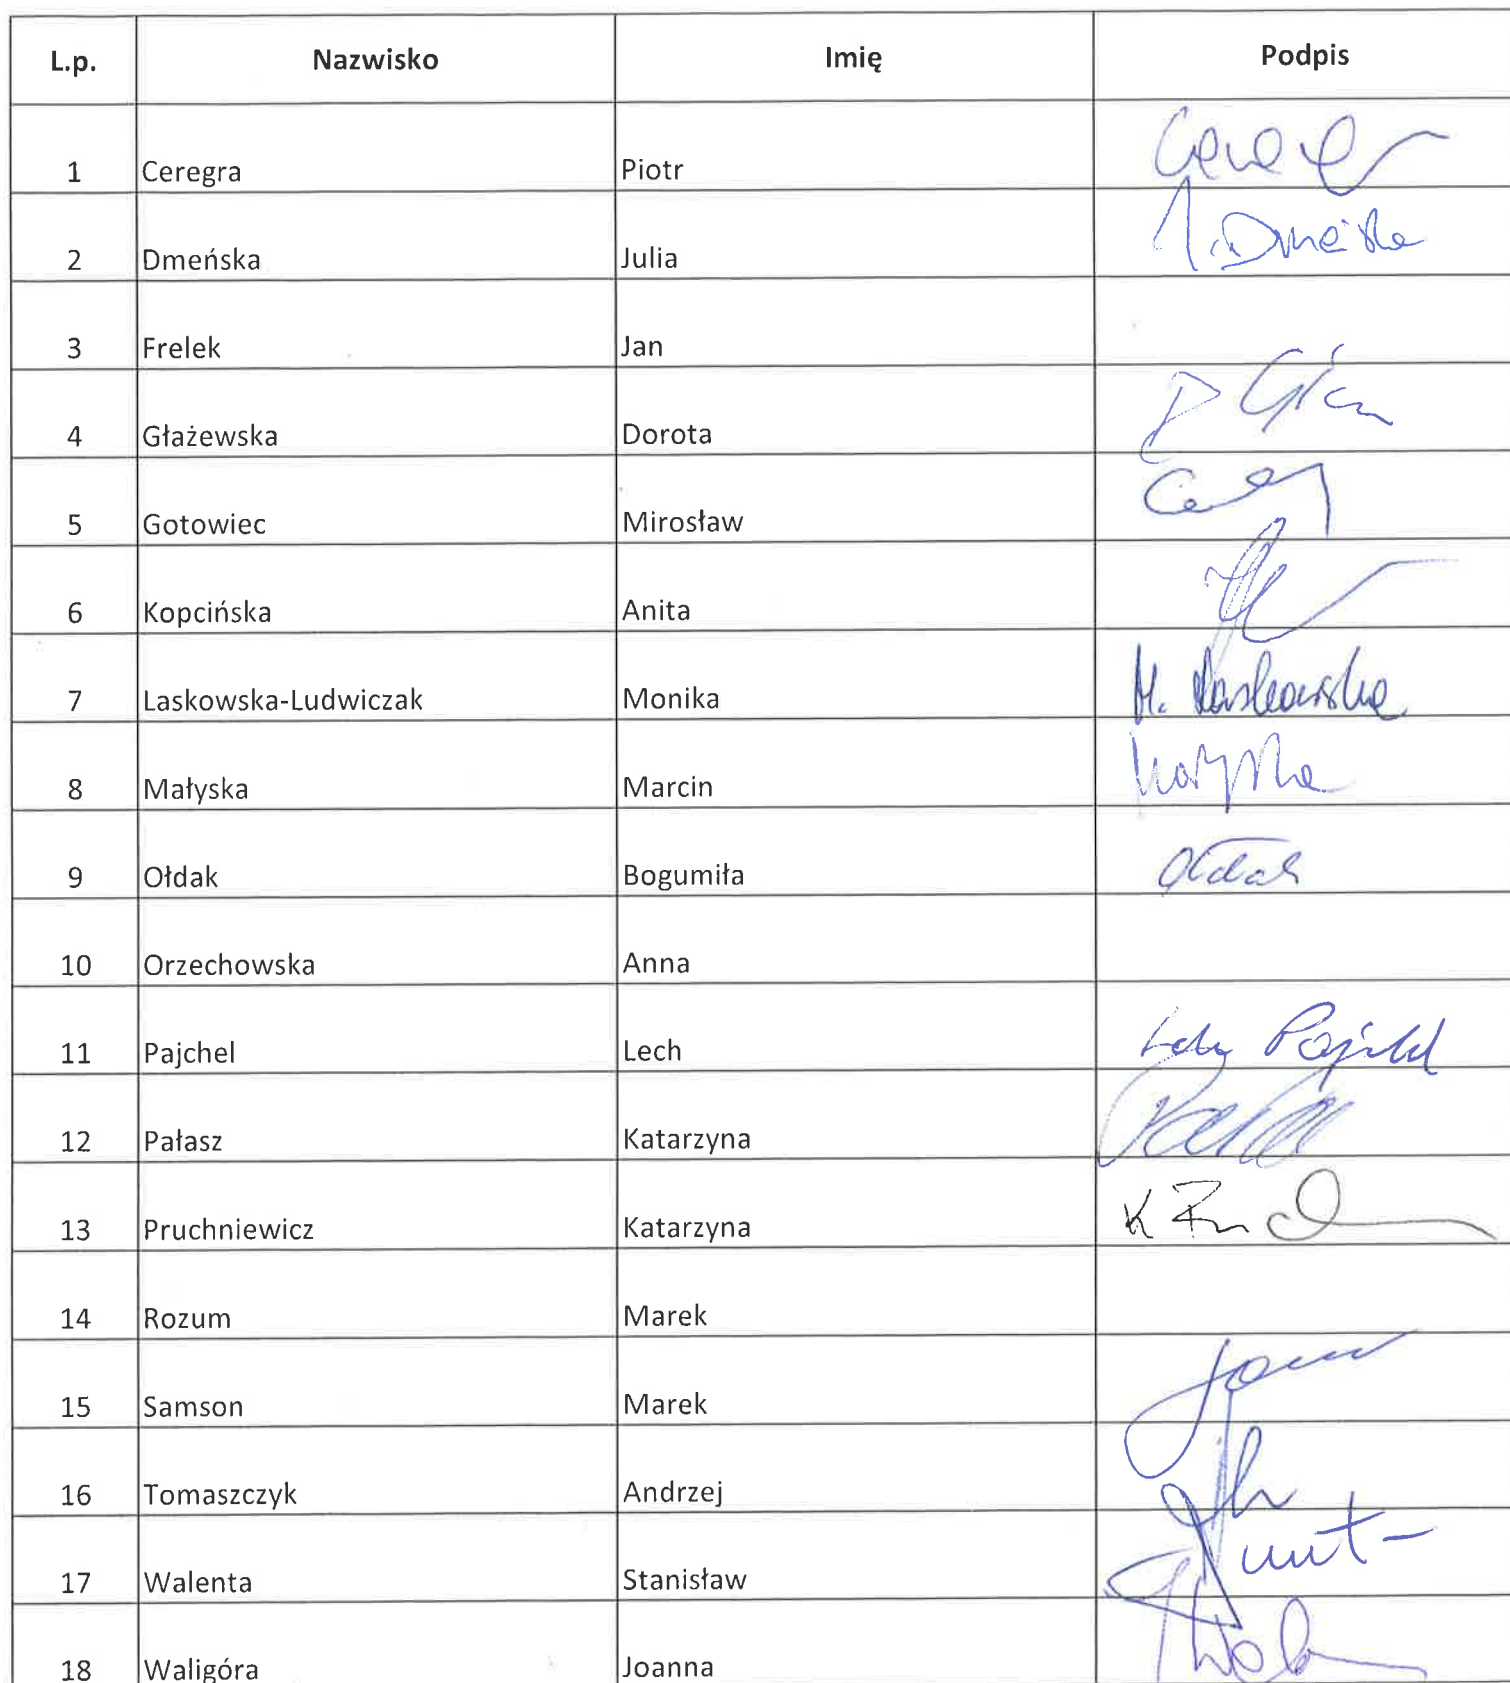 L.p. Nazwisko Imię Podpis
1 Ceregra Piotr
2 Dmeńska Julia J. Dmeńska
3 Frelek Jan
4 Głażewska Dorota
5 Gotowiec Mirosław
6 Kopcińska Anita
7 Laskowska-Ludwiczak Monika M. Laskowska
8 Małyska Marcin Małyska
9 Ołdak Bogumiła Ołdak
10 Orzechowska Anna
11 Pajchel Lech Lech Pajchel
12 Pałasz Katarzyna
13 Pruchniewicz Katarzyna
14 Rozum Marek
15 Samson Marek
16 Tomaszczyk Andrzej
17 Walenta Stanisław
18 Waligóra Joanna